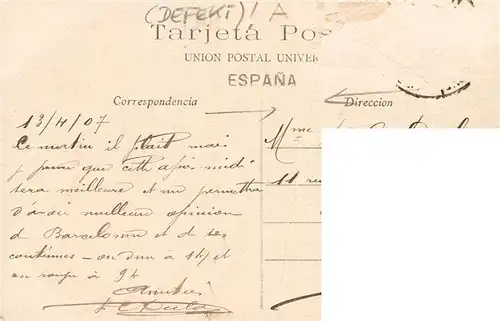 (DEFEKT)! A
Tarjeta Pos
UNION POSTAL UNIVER
ESPAÑA
Correspondencia
Direccion
13/4/07
Mme
Ce matin il plait mais
je pense que cette après-midi
11 rue
sera meilleure et me permettra
d'avoir meilleure opinion
d Barcelonne et de ses
coutumes - on dine à 1h/ et
on soupe à 9h